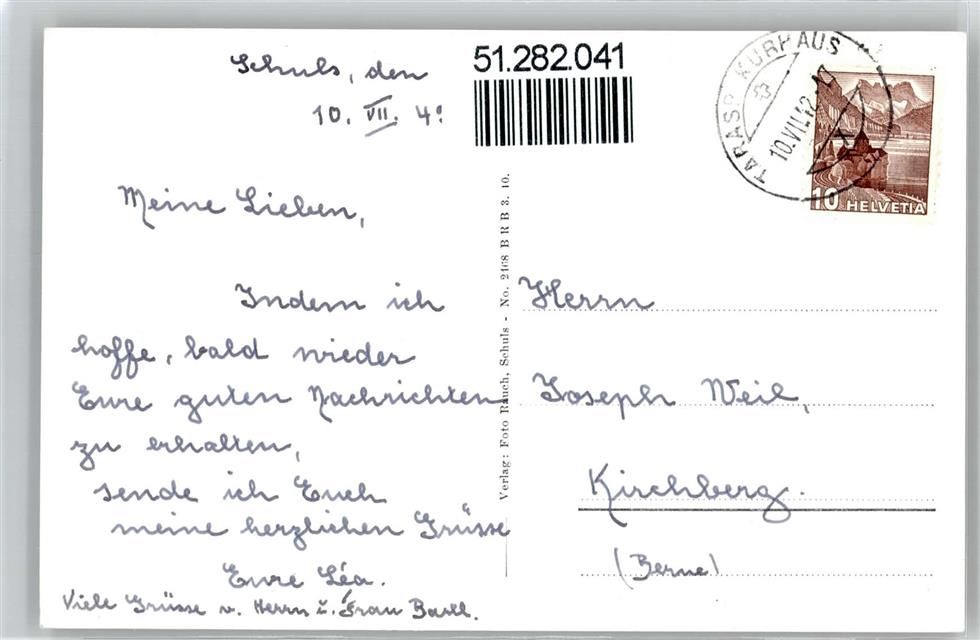 Schuls, den
10. VII. 4
51.282.041
TARASP KURHAUS
10.VII.42
10 HELVETIA
Meine Lieben,
Indem ich
hoffe, bald wieder
Eure guten Nachrichten
zu erhalten,
sende ich Euch
meine herzlichen Grüsse
Eure Léa.
Viele Grüsse v. Herrn u. Frau
Verlag: Foto Rauch, Schuls - No. 2168 BRB 3. 10.
Herrn
Joseph Weil,
Kirchberg.
(Berne)